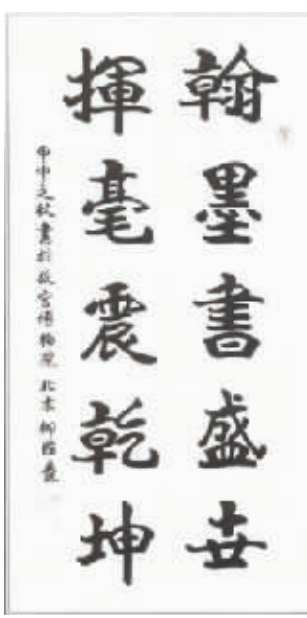 翰墨書盛世
揮毫震乾坤
甲申之秋書於故宮博物院 北京